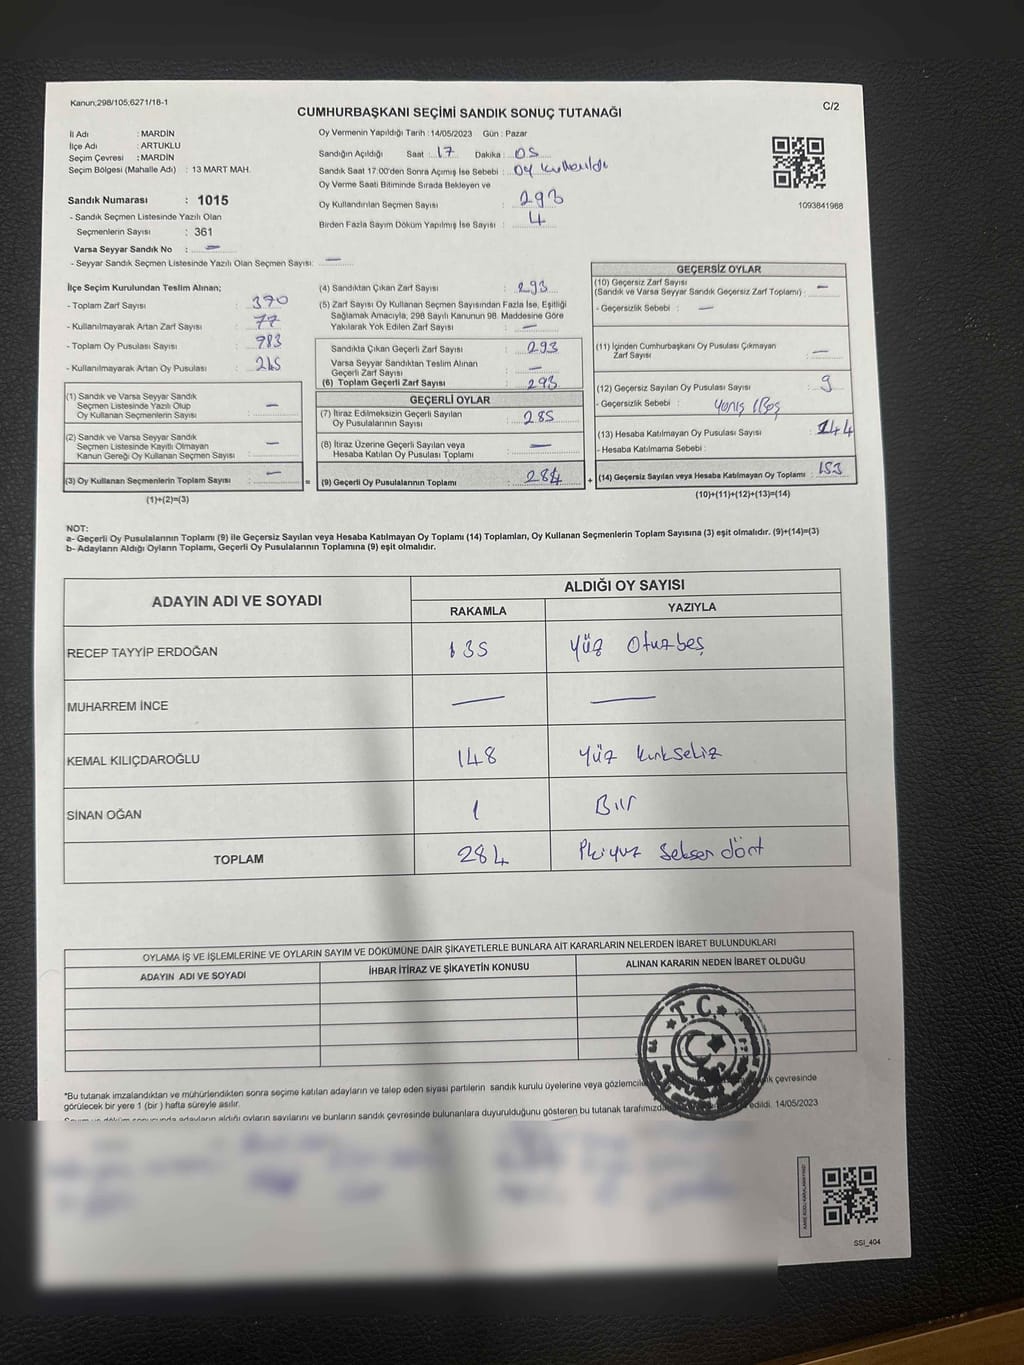 Kanun;298/105;6271/18-1
CUMHURBAŞKANI SEÇİMİ SANDIK SONUÇ TUTANAĞI
C/2
İl Adı : MARDİN
İlçe Adı : ARTUKLU
Seçim Çevresi : MARDİN
Seçim Bölgesi (Mahalle Adı) : 13 MART MAH.
Sandık Numarası : 1015
- Sandık Seçmen Listesinde Yazılı Olan
Seçmenlerin Sayısı : 361
Varsa Seyyar Sandık No : —
- Seyyar Sandık Seçmen Listesinde Yazılı Olan Seçmen Sayısı: —
Oy Vermenin Yapıldığı Tarih : 14/05/2023 Gün : Pazar
Sandığın Açıldığı Saat : 17 Dakika : 05
Sandık Saat 17:00'den Sonra Açımış İse Sebebi : Oy kullanıldı
Oy Verme Saati Bitiminde Sırada Bekleyen ve
Oy Kullandırılan Seçmen Sayısı : 293
Birden Fazla Sayım Döküm Yapılmış İse Sayısı : 4
1093841988
İlçe Seçim Kurulundan Teslim Alınan;
- Toplam Zarf Sayısı : 370
- Kullanılmayarak Artan Zarf Sayısı : 77
- Toplam Oy Pusulası Sayısı : 983
- Kullanılmayarak Artan Oy Pusulası :
(1) Sandık ve Varsa Seyyar Sandık
Seçmen Listesinde Yazılı Olup
Oy Kullanan Seçmenlerin Sayısı : —
(2) Sandık ve Varsa Seyyar Sandık
Seçmen Listesinde Kayıtlı Olmayan
Kanun Gereği Oy Kullanan Seçmen Sayısı : —
(3) Oy Kullanan Seçmenlerin Toplam Sayısı : —
(1)+(2)=(3)
=
(4) Sandıktan Çıkan Zarf Sayısı : 293
(5) Zarf Sayısı Oy Kullanan Seçmen Sayısından Fazla İse, Eşitliği
Sağlamak Amacıyla, 298 Sayılı Kanunun 98. Maddesine Göre
Yakılarak Yok Edilen Zarf Sayısı : —
Sandıkta Çıkan Geçerli Zarf Sayısı : 293
Varsa Seyyar Sandıktan Teslim Alınan
Geçerli Zarf Sayısı : —
(6) Toplam Geçerli Zarf Sayısı : 293
GEÇERLİ OYLAR
(7) İtiraz Edilmeksizin Geçerli Sayılan
Oy Pusulalarının Sayısı : 285
(8) İtiraz Üzerine Geçerli Sayılan veya
Hesaba Katılan Oy Pusulası Toplamı : —
(9) Geçerli Oy Pusulalarının Toplamı : 284
+
GEÇERSİZ OYLAR
(10) Geçersiz Zarf Sayısı
(Sandık ve Varsa Seyyar Sandık Geçersiz Zarf Toplamı) : —
- Geçersizlik Sebebi : —
(11) İçinden Cumhurbaşkanı Oy Pusulası Çıkmayan
Zarf Sayısı : —
(12) Geçersiz Sayılan Oy Pusulası Sayısı : 9
- Geçersizlik Sebebi :
(13) Hesaba Katılmayan Oy Pusulası Sayısı : 144
- Hesaba Katılmama Sebebi :
(14) Geçersiz Sayılan veya Hesaba Katılmayan Oy Toplamı : 153
(10)+(11)+(12)+(13)=(14)
NOT:
a- Geçerli Oy Pusulalarının Toplamı (9) ile Geçersiz Sayılan veya Hesaba Katılmayan Oy Toplamı (14) Toplamları, Oy Kullanan Seçmenlerin Toplam Sayısına (3) eşit olmalıdır. (9)+(14)=(3)
b- Adayların Aldığı Oyların Toplamı, Geçerli Oy Pusulalarının Toplamına (9) eşit olmalıdır.
ADAYIN ADI VE SOYADI
ALDIĞI OY SAYISI
RAKAMLA YAZIYLA
RECEP TAYYİP ERDOĞAN 135 Yüz Otuzbeş
MUHARREM İNCE — —
KEMAL KILIÇDAROĞLU 148 Yüz kırksekiz
SİNAN OĞAN 1 Bir
TOPLAM 284 İkiyüz Seksen dört
OYLAMA İŞ VE İŞLEMLERİNE VE OYLARIN SAYIM VE DÖKÜMÜNE DAİR ŞİKAYETLERLE BUNLARA AİT KARARLARIN NELERDEN İBARET BULUNDUKLARI
ADAYIN ADI VE SOYADI İHBAR İTİRAZ VE ŞİKAYETİN KONUSU ALINAN KARARIN NEDEN İBARET OLDUĞU
T.C.
*Bu tutanak imzalandıktan ve mühürlendikten sonra seçime katılan adayların ve talep eden siyasi partilerin sandık kurulu üyelerine veya gözlemcile çevresinde
görülecek bir yere 1 (bir ) hafta süreyle asılır.
adayların aldığı oyların sayılarını ve bunların sandık çevresinde bulunanlara duyurulduğunu gösteren bu tutanak tarafımızda edildi. 14/05/2023
SSI_404